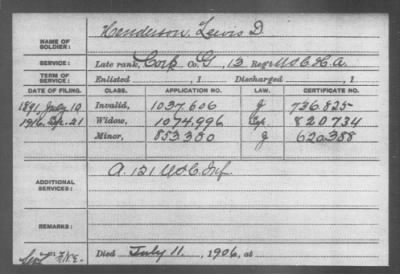 NAME OF SOLDIER: Henderson, Lewis D.
SERVICE: Late rank, Corp Co. G, 13 Reg't U.S.C.H.A.
TERM OF SERVICE: Enlisted , 1 Discharged , 1
DATE OF FILING. CLASS. APPLICATION NO. LAW. CERTIFICATE NO.
1891, July 10 Invalid, 1037.606 J 736.825
1916, 21 Widow, 1074,996 820734
Minor, 853300 J 620388
ADDITIONAL SERVICES: A. 121 U.S.C. Inf.
REMARKS:
Died July 11, 1906, at